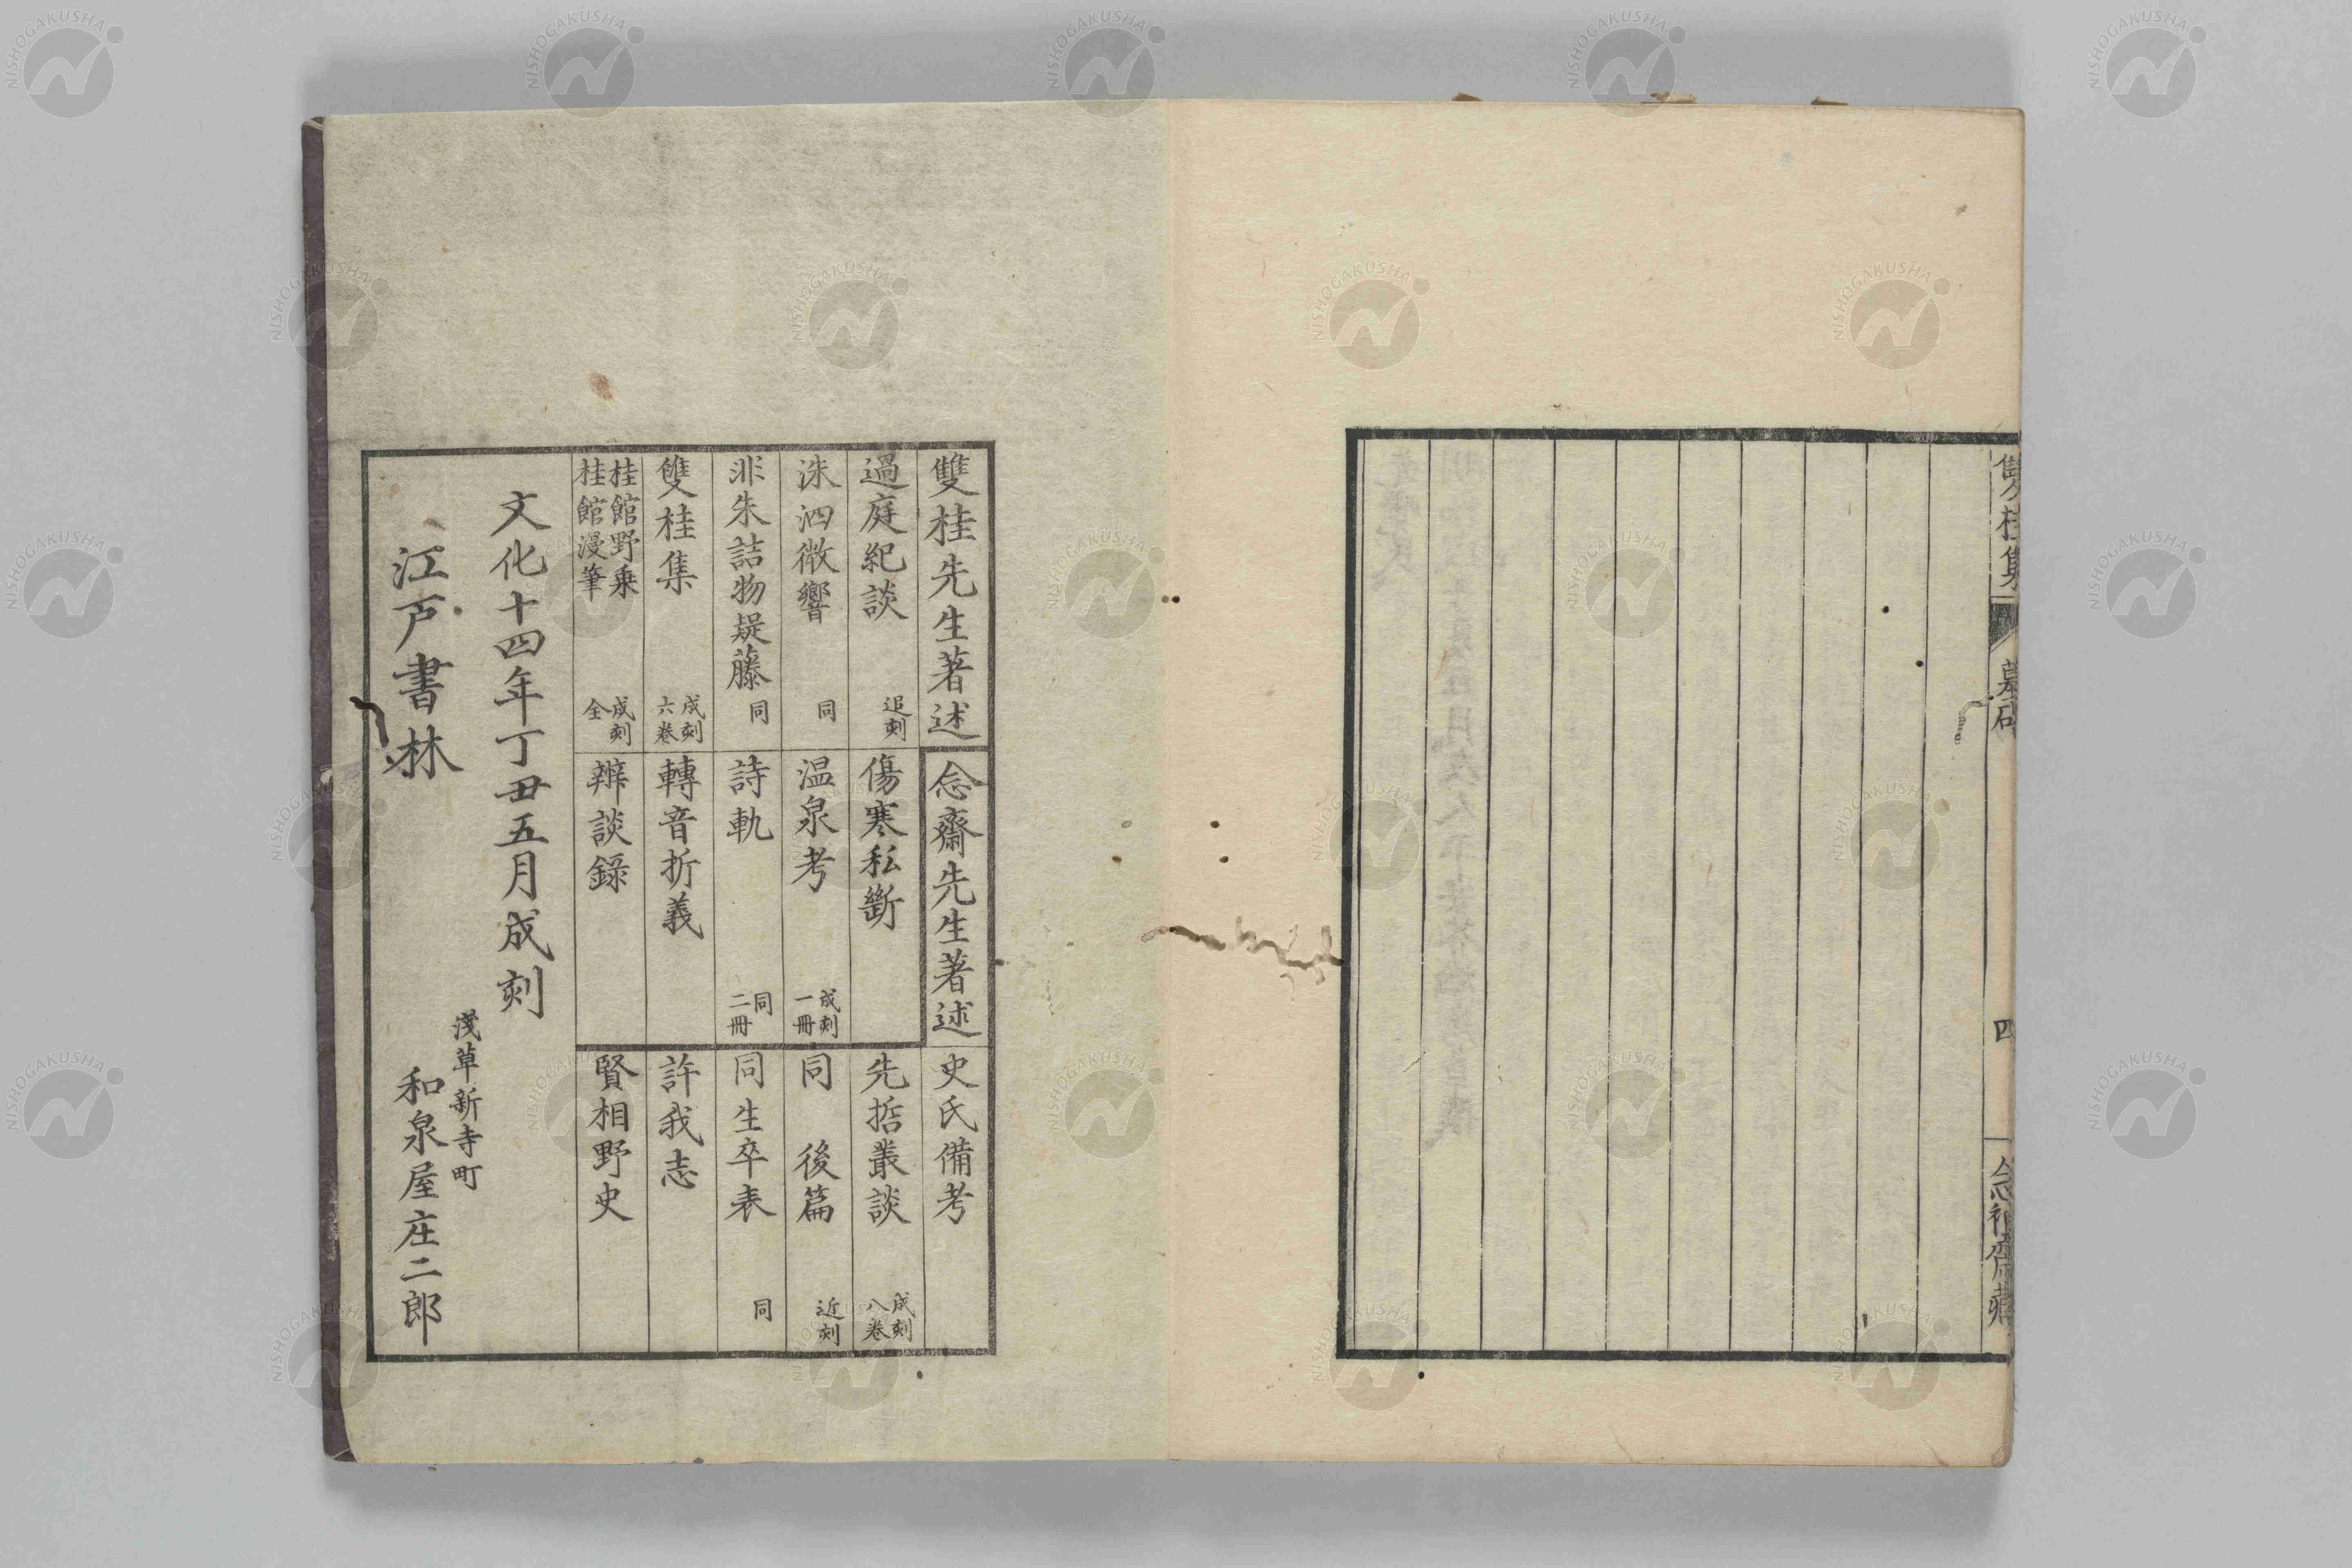 雙桂集
墓碑
四
念祖齋藏
雙桂先生著述
過庭紀談 追刻
洙泗微響 同
非朱詰物疑藤 同
雙桂集 成刻六卷
桂館野乗
桂館漫筆 成刻全
傷寒私斷
温泉考 成刻一冊
詩軌 同二冊
轉音折義
辨談錄
念齋先生著述
史氏備考
先哲叢談 成刻八卷
同 後篇 近刻
同生卒表 同
許我志
賢相野史
文化十四年丁丑五月成刻
淺草新寺町
江戸書林 和泉屋庄二郎
NISHOGAKUSHA